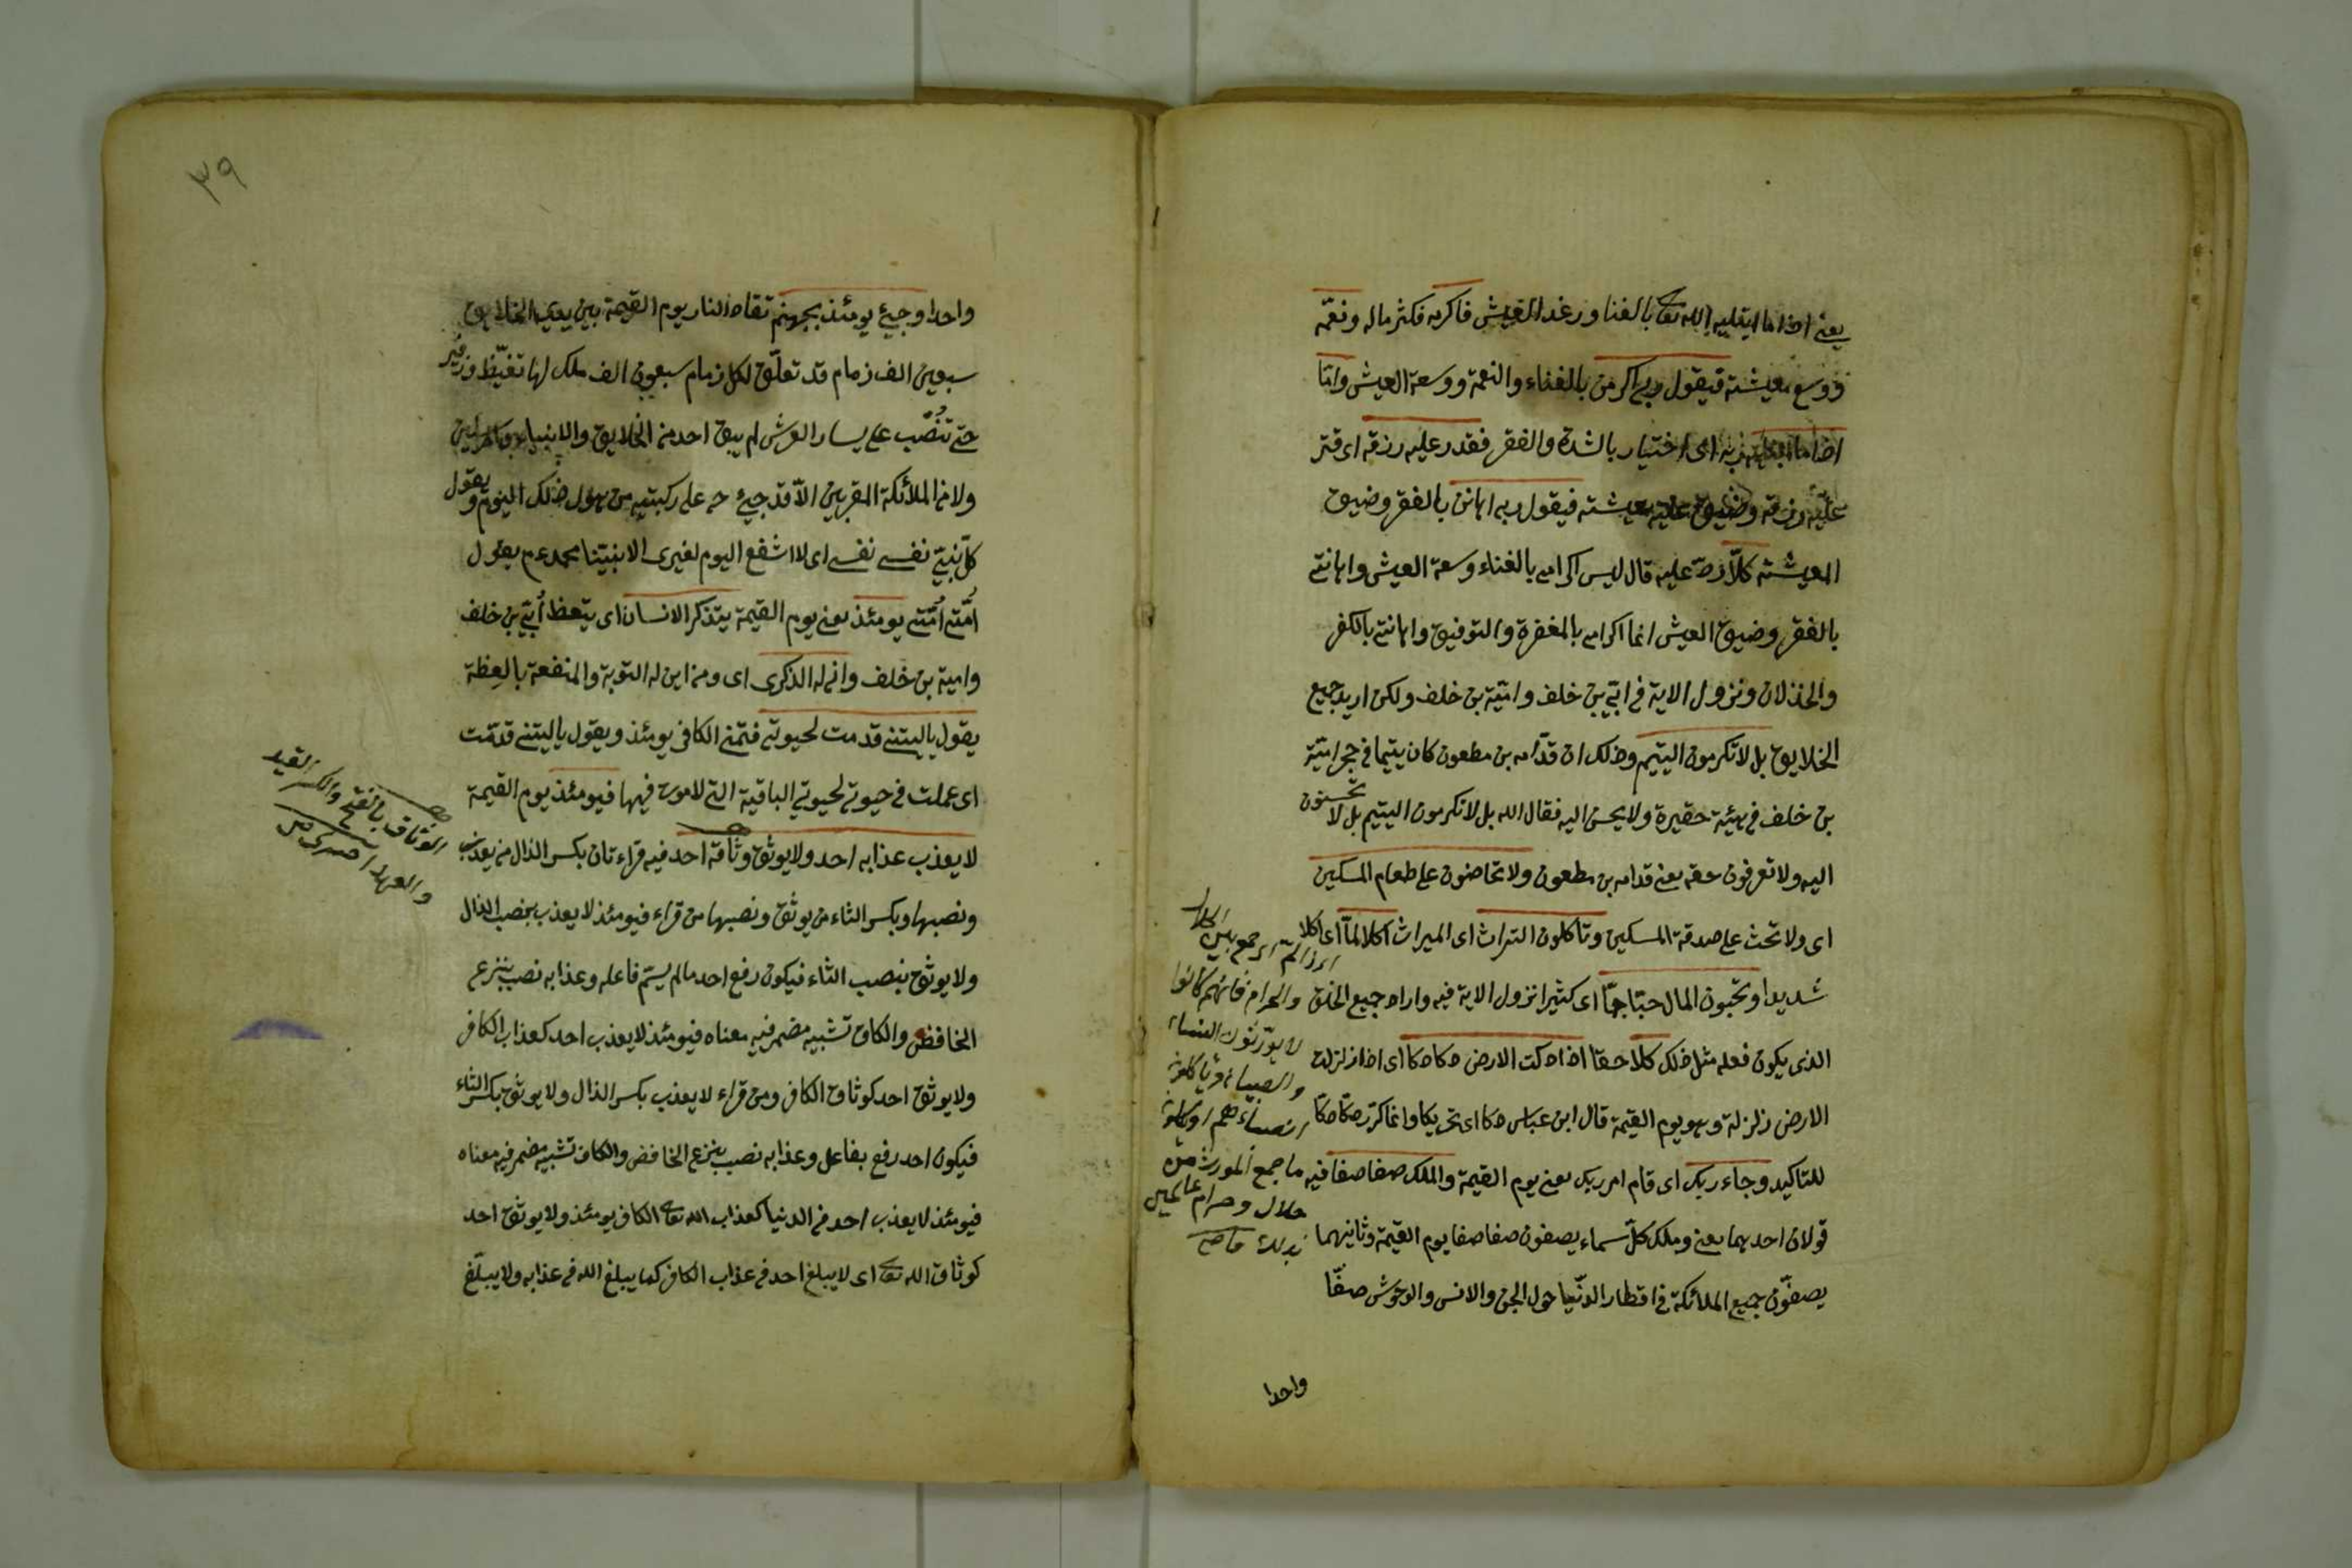 يعنى اذا ما ابتليه الله تعا بالغنا ورغد العيش فاكرمه فكثر ماله ونعّمه
ووسع معيشته فيقول ربى اكرمن بالغناء والنعمة ووسعة العيش وامّا
اذا ما ابتليه ربه اى اختيار بالشدة والفقر فقدر عليه رزقه اى قتر
عليه رزقه وضيق عليه معيشته فيقول ربى اهانن بالفقر وضيق
المعيشته كلّا ردّ عليه قال ليس اكرامى بالغناء وسعة العيش واهانتى
بالفقر وضيق العيش انما اكرامى بالمغفرة والتوفيق واهانتى بالكفر
والخذلان ونزول الاية فى ابىّ بن خلف واميّة بن خلف ولكن اريد جميع
الخلايق بل لا تكرمون اليتيم وذلك ان قدّامه بن مطعون كان يتيما فى حجر اميّة
بن خلف فى هيئة حقيرة ولا يحسن اليه فقال الله بل لا تكرمون اليتيم بل لا تحسنون
اليه ولا تعرفون حقه يعنى قدامه بن مطعون ولا تحاضون على طعام المسكين
اى ولا تحث على صدقة المسكين وتأكلون التراث اى الميراث اكلا لمّا اى اكلا
شديدا وتحبون المال حبّا جمّا اى كثيرا نزول الاية فيه واراد جميع الخلق
الذى يكون فعله مثل ذلك كلا حقا اذا دكت الارض دكا دكا اى اذا زلزلت
الارض زلزلة وهو يوم القيمة قال ابن عباس دكا اى تحريكا وانما كرّر دكّا دكّا
للتاكيد وجاء ربك اى قام امر ربك يعنى يوم القيمة والملك صفا صفا فيه
قولان احدهما يعنى وملك كلّ سماء يصفون صفا صفا يوم القيمة وثانيهما
يصفّون جميع الملائكة فى اقطار الدنّيا حول الجن والانس والوحوش صفّا
واحدا
والحرام فانهم كانوا
لا يورّثون النساء
والصبيان ويأكلون
انصباءهم او يأكلون
ما جمع المورث من
حلال وحرام عالمين
بذلك قاضى
٣٩
واحدا وجئ يومئذ بجهنم تقاد النار يوم القيمة بين يدى الخلايق
سبعين الف زمام قد تعلّق لكل زمام سبعون الف ملك لها تغيّظ وزفير
حتى تُنصّب على يسار العرش لم يبق احد من الخلايق والانبياء والمرسلين
ولا من الملائكة المقربين الاّ قد جئ على ركبتيه من هول ذلك اليوم ويقول
كلّ نبىّ نفسى نفسى اى لا اشفع اليوم لغيرى الا نبيّنا محمد عم يقول
اُمّتى اُمّتى يومئذ يعنى يوم القيمة يتذكر الانسان اى يتعظ اُبىّ بن خلف
وامية بن خلف وانى له الذكرى اى ومن اين له التوبة والمنفعة بالعِظة
يقول ياليتنى قدمت لحيوتى فتمنى الكافر يومئذ ويقول ياليتنى قدّمت
اى عملت فى حيوتى لحيوتى الباقية التى لا موت فيها فيومئذ يوم القيمة
لا يعذب عذابه احد ولا يوثق وثاقه احد فيه قراءتان بكسر الذال من يعذب
ونصبها وبكسر الثاء من يوثق ونصبها من قراء فيومئذ لا يعذب بنصب الذال
ولا يوثق بنصب الثاء فيكون رفع احد مالم يسّم فاعله وعذابه نصب بنزع
الخافض والكاف تشبيه مضمر فيه معناه فيومئذ لا يعذب احد كعذاب الكافر
ولا يوثق احد كوثاق الكافر ومن قراء لا يعذب بكسر الذال ولا يوثق بكسر الثاء
فيكون احد رفع بفاعل وعذابه نصب بنزع الخافض والكاف تشبيه مضمر فيه معناه
فيومئذ لا يعذب احد فى الدنيا كعذاب الله تعا الكافر يومئذ ولا يوثق احد
كوثاق الله تعا اى لا يبلغ احد فى عذاب الكافر كما يبلغ الله فى عذابه ولا يبلّغ
الوثاق بالفتح والكسر القيد